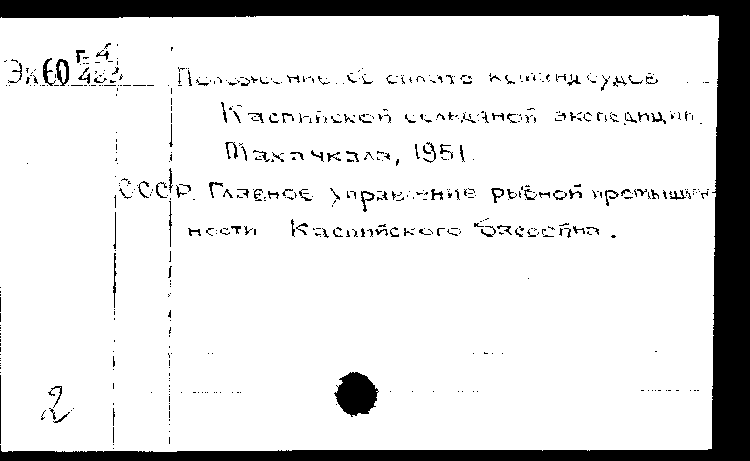 Эк60 Г-4
483
Положение об оплате команд судов
Каспийской сельдяной экспедиции.
Махачкала, 1951.
СССР. Главное управление рыбной промышлен-
ности Каспийского бассейна.
2